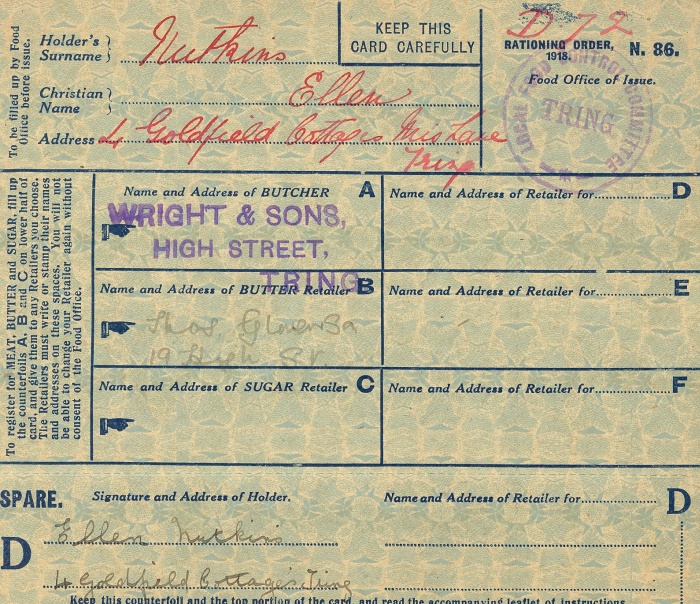 To be filled up by Food
Office before issue.
Holder's
Surname
Nutkins
KEEP THIS
CARD CAREFULLY
Christian
Name
Ellen
Address 4 Goldfield Cottages Miss Lane
Tring
D 72
RATIONING ORDER,
1918.
N. 86.
Food Office of Issue.
LOCAL FOOD CONTROL COMMITTEE
TRING
To register for MEAT, BUTTER and SUGAR, fill up
the counterfoils A, B and C on lower half of
card, and give them to any Retailers you choose.
The Retailers must write or stamp their names
and addresses on these spaces. You will not
be able to change your Retailer again without
consent of the Food Office.
Name and Address of BUTCHER A
WRIGHT & SONS,
HIGH STREET,
TRING
Name and Address of Retailer for D
Name and Address of BUTTER Retailer B
Thos. Glover
19 High St
Name and Address of Retailer for E
Name and Address of SUGAR Retailer C
Name and Address of Retailer for F
SPARE.
Signature and Address of Holder.
Name and Address of Retailer for D
D
Ellen Nutkins
4 Goldfield Cottages Tring
Keep this counterfoil and the top portion of the card, and read the accompanying leaflet of instructions.